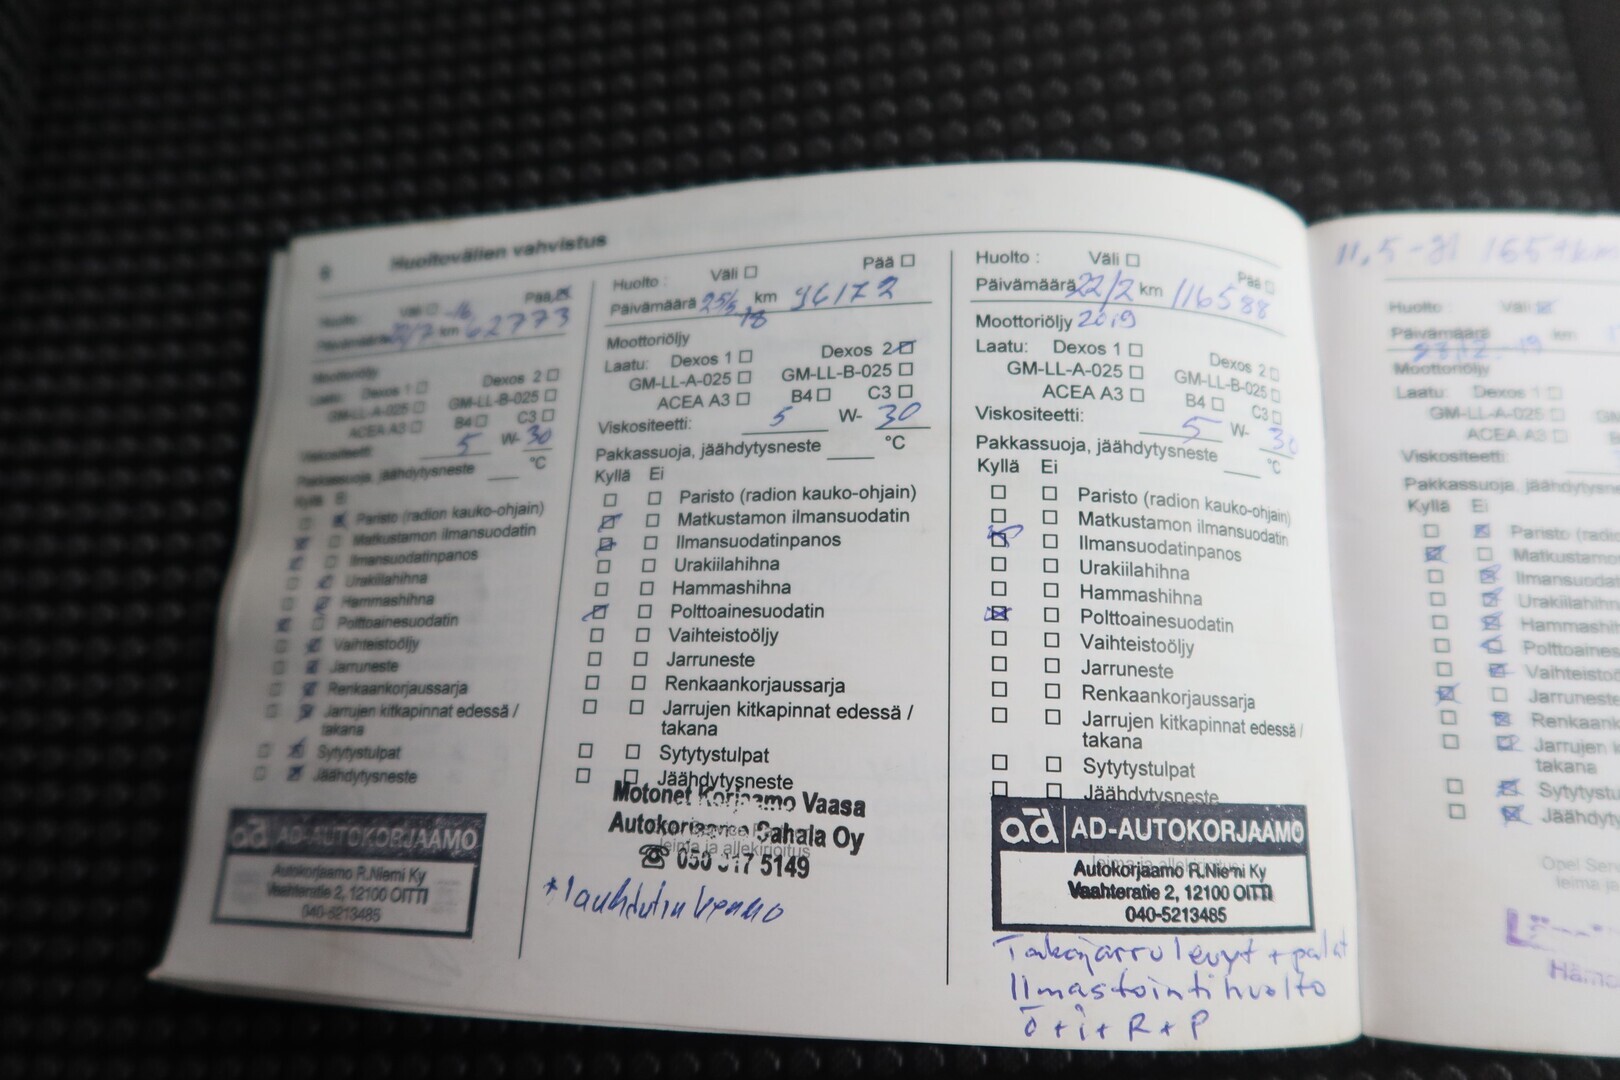 6 Huoltovälien vahvistus
Huolto: Väli -16 Pää
Päivämäärä /7 km 62773
Moottoriöljy
Laatu: Dexos 1 Dexos 2
GM-LL-A-025 GM-LL-B-025
ACEA A3 B4 C3
Viskositeetti: 5 W- 30
Pakkassuoja, jäähdytysneste °C
Kyllä Ei
Paristo (radion kauko-ohjain)
Matkustamon ilmansuodatin
Ilmansuodatinpanos
Urakiilahihna
Hammashihna
Polttoainesuodatin
Vaihteistoöljy
Jarruneste
Renkaankorjaussarja
Jarrujen kitkapinnat edessä /
takana
Sytytystulpat
Jäähdytysneste
ad AD-AUTOKORJAAMO
Autokorjaamo R.Niemi Ky
Vaahteratie 2, 12100 OITTI
040-5213485
Huolto: Väli Pää
Päivämäärä 25/5 18 km 96172
Moottoriöljy
Laatu: Dexos 1 Dexos 2
GM-LL-A-025 GM-LL-B-025
ACEA A3 B4 C3
Viskositeetti: 5 W- 30
Pakkassuoja, jäähdytysneste °C
Kyllä Ei
Paristo (radion kauko-ohjain)
Matkustamon ilmansuodatin
Ilmansuodatinpanos
Urakiilahihna
Hammashihna
Polttoainesuodatin
Vaihteistoöljy
Jarruneste
Renkaankorjaussarja
Jarrujen kitkapinnat edessä /
takana
Sytytystulpat
Jäähdytysneste
Motonet Korjaamo Vaasa
Autokorjaamo Sahala Oy
leima ja allekirjoitus
☎ 050 517 5149
Huolto : Väli Pää
Päivämäärä 22/2 km 116588
Moottoriöljy 2019
Laatu: Dexos 1 Dexos 2
GM-LL-A-025 GM-LL-B-025
ACEA A3 B4 C3
Viskositeetti: 5 W- 30
Pakkassuoja, jäähdytysneste °C
Kyllä Ei
Paristo (radion kauko-ohjain)
Matkustamon ilmansuodatin
Ilmansuodatinpanos
Urakiilahihna
Hammashihna
Polttoainesuodatin
Vaihteistoöljy
Jarruneste
Renkaankorjaussarja
Jarrujen kitkapinnat edessä /
takana
Sytytystulpat
Jäähdytysneste
ad AD-AUTOKORJAAMO
leima ja allekirjoitus
Autokorjaamo R.Niemi Ky
Vaahteratie 2, 12100 OITTI
040-5213485
Takajarrulevyt + palat
Ilmastointihuolto
Ö + i + R + P
11.5-21
Huolto: Väli
Päivämäärä km
Moottoriöljy
Laatu: Dexos 1
GM-LL-A-025
ACEA A3
Viskositeetti:
Pakkassuoja, jäähdytysne
Kyllä Ei
Paristo (radio
Matkustamo
Ilmansuoda
Urakiilahihn
Hammashih
Polttoaines
Vaihteistoö
Jarruneste
Renkaank
Jarrujen k
takana
Sytytystu
Jäähdyty
Opel Ser
leima ja